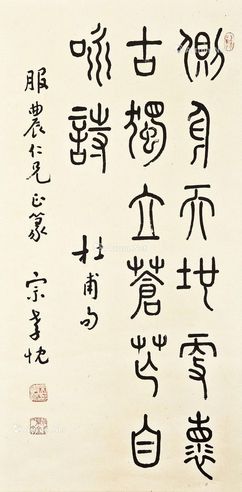 側身天地更懷
古獨立蒼茫自
咏詩 杜甫句
服農仁兄正篆 宗孝忱